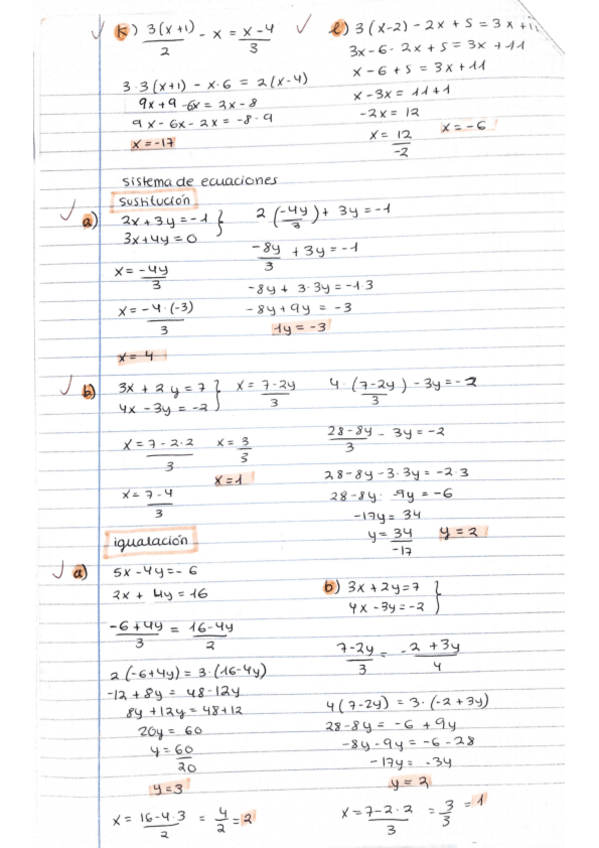 k) 3(x+1)/2 - x = x-4/3
3·3(x+1) - x·6 = 2(x-4)
9x+9 -6x = 2x-8
9x-6x-2x = -8-9
x=-17
l) 3(x-2) - 2x + 5 = 3x + 11
3x-6-2x+5=3x+11
x-6+5=3x+11
x-3x=11+1
-2x=12
x=12/-2 x=-6
sistema de ecuaciones
Sustitución
a) 2x+3y=-1 }
3x+4y=0
x=-4y/3
x=-4·(-3)/3
x=4
2(-4y/3)+3y=-1
-8y/3+3y=-1
-8y+3·3y=-1·3
-8y+9y=-3
1y=-3
b) 3x+2y=7 } x=7-2y/3
4x-3y=-2
x=7-2·2/3 x=3/3
x=1
x=7-4/3
4·(7-2y/3)-3y=-2
28-8y/3-3y=-2
28-8y-3·3y=-2·3
28-8y-9y=-6
-17y=34
y=34/-17 y=2
igualación
a) 5x-4y=-6
2x+4y=16
-6+4y/3=16-4y/2
2(-6+4y)=3·(16-4y)
-12+8y=48-12y
8y+12y=48+12
20y=60
y=60/20
y=3
x=16-4·3/2=4/2=2
b) 3x+2y=7 }
4x-3y=-2
7-2y/3=-2+3y/4
4(7-2y)=3·(-2+3y)
28-8y=-6+9y
-8y-9y=-6-28
-17y=-34
y=2
x=7-2·2/3=3/3=1